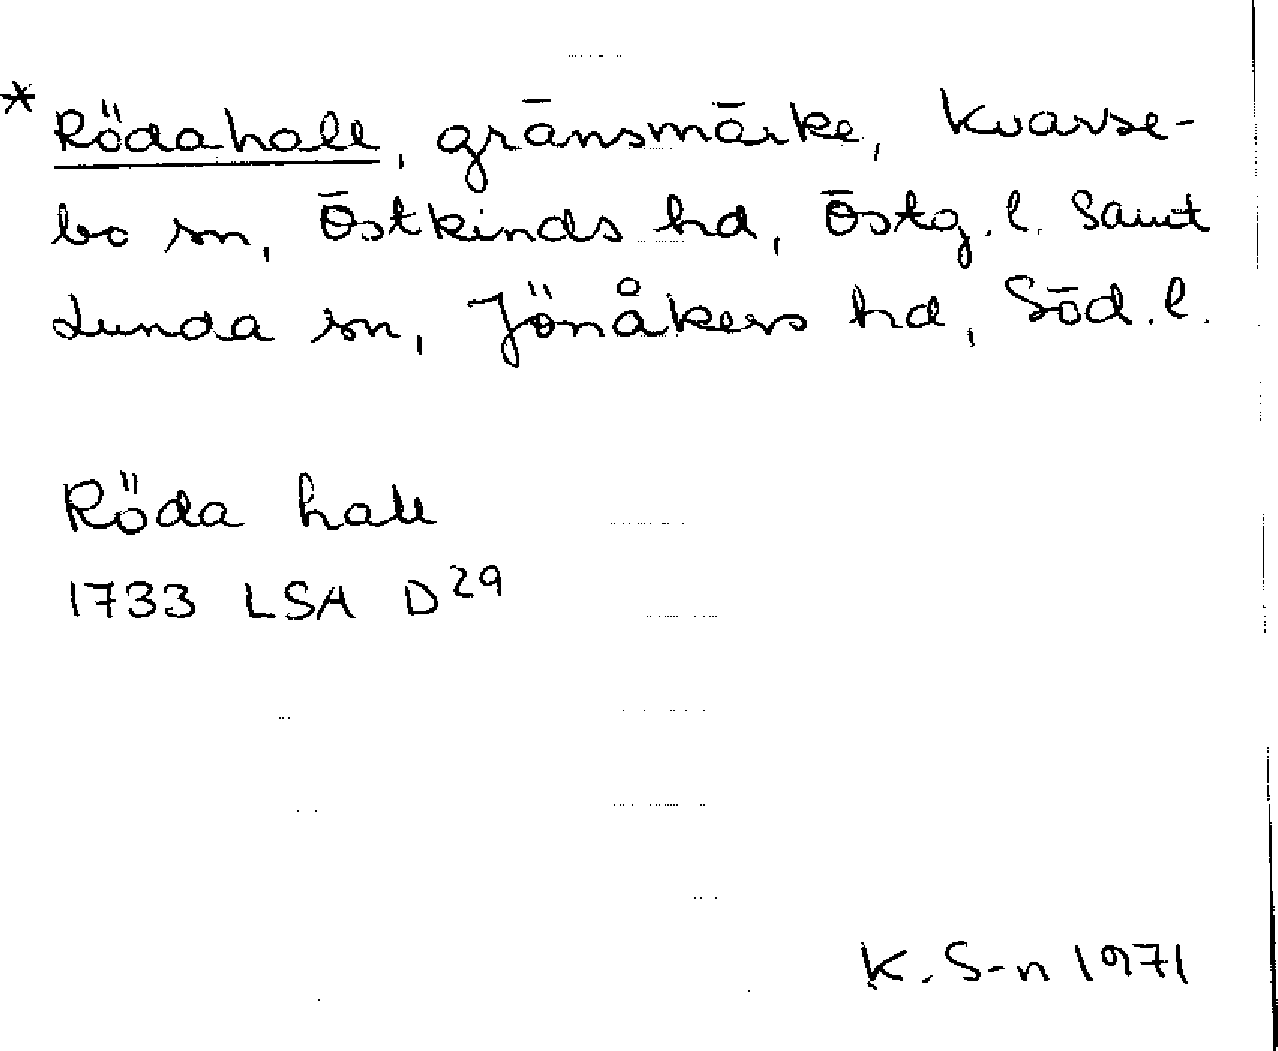 * Rödahall, gränsmärke, Kvarse-
bo sn, Östkinds hd, Östg. l. samt
Lunda sn, Jönåkers hd, Söd. l.
Röda hall
1733 LSA D29
K. S-n 1971